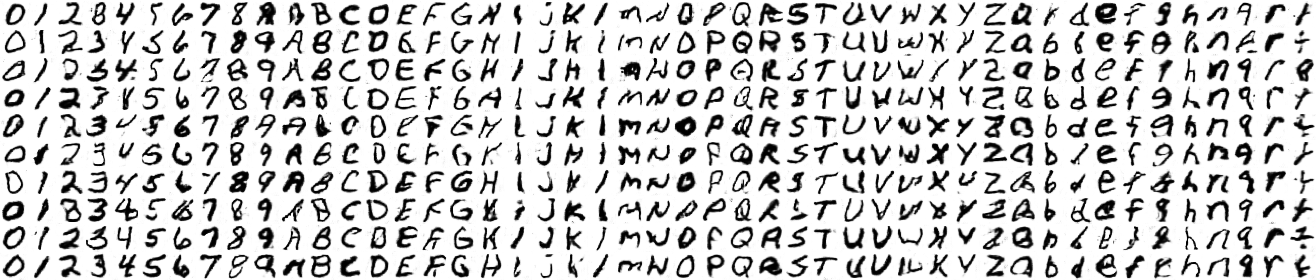 0 1 2 8 4 5 6 7 8 9 A B C D E F G H I J K l M N O P Q R S T U V W X Y Z a b d e f g h n q r t
0 1 2 3 4 5 6 7 8 9 A B C D E F G H I J K l M N O P Q R S T U V W X Y Z a b d e f g h n q r t
0 1 2 3 4 5 6 7 8 9 A B C D E F G H I J H l M N O P Q R S T U V W X Y Z a b d e f g h n q r t
0 1 2 3 4 5 6 7 8 9 A B C D E F G H I J K l M N O P Q R S T U V W X Y Z a b d e f g h n q r t
0 1 2 3 4 5 6 7 8 9 A A C D E F G H I J K l M N O P Q R S T U V W X Y Z a b d e f g h n q r t
0 1 2 3 4 5 6 7 8 9 A B C D E F G K I J H l M N O P Q R S T U V W X Y Z a b d e f g h n q r t
0 1 2 3 4 5 6 7 8 9 A B C D E F G H I J K l M N O P Q R S T U V W X Y Z a b d e f g h n q r t
0 1 8 3 4 5 6 7 8 9 A B C D E F G K I J K l M N O P Q R S T U V W X Y Z a b d e f g h n q r t
0 1 2 3 4 5 6 7 8 9 A B C D E F G K I J K l M N O P Q A S T U V W X Y Z a b d e f g h n q r t
0 1 2 3 4 5 6 7 8 9 A B C D E F G H I J K l M N O P Q R S T U V W X Y Z a b d e f g h n q r t